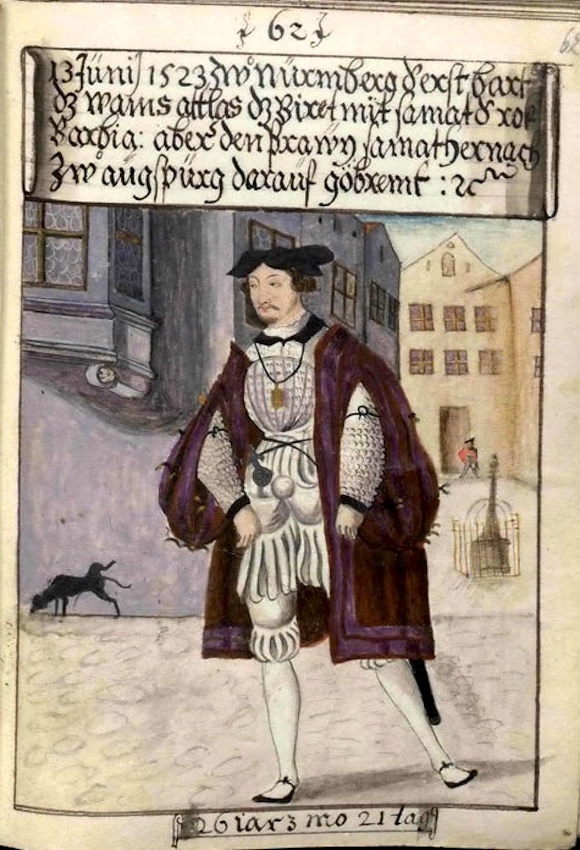 62
13 Junij 1523 zwo Nurmberg d erst bart
dz wams attlas dz Biret mit samat d rok
Barhia: aber den prawn samat hernach
Zwo augspurg darauf gobremt : ꝛc
26 iar 3 mo 21 tag